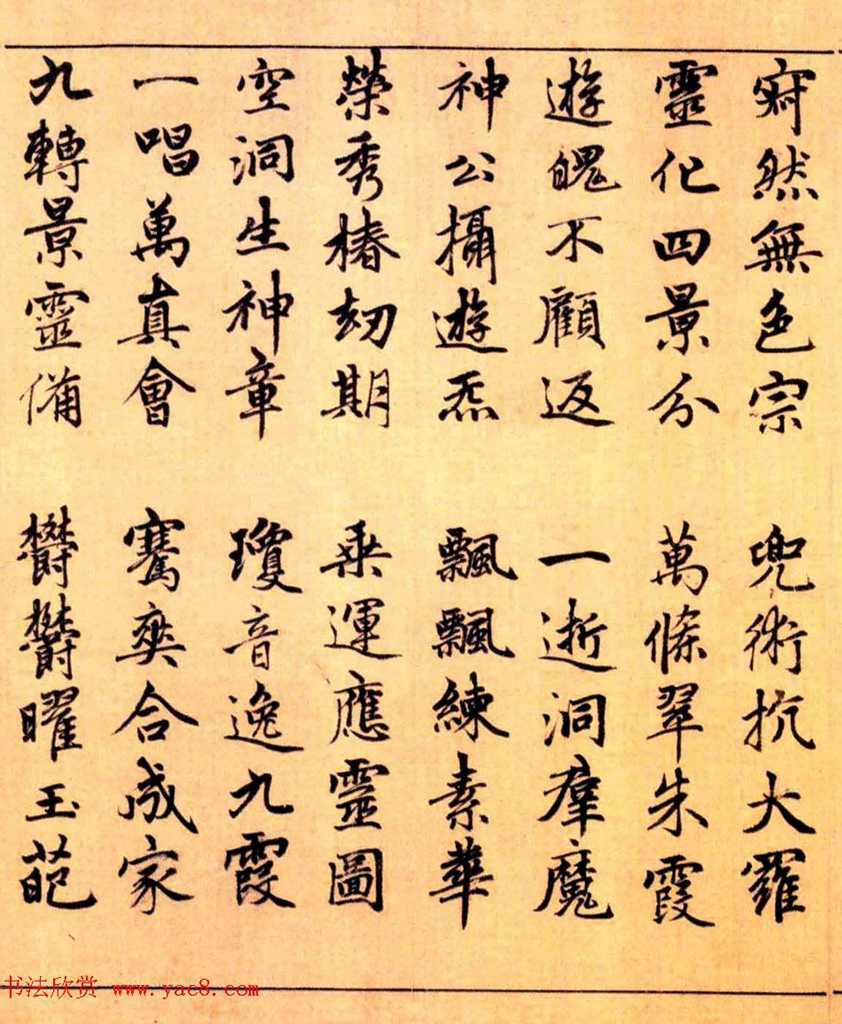 寂然無色宗 兜術抗大羅
靈化四景分 萬條翠朱霞
遊魄不顧返 一逝洞群魔
神公攝遊炁 飄飄練素華
榮秀椿劫期 乘運應靈圖
空洞生神章 瓊音逸九霞
一唱萬真會 騫爽合成家
九轉景靈備 欝欝曜玉葩
书法欣赏 www.yac8.com